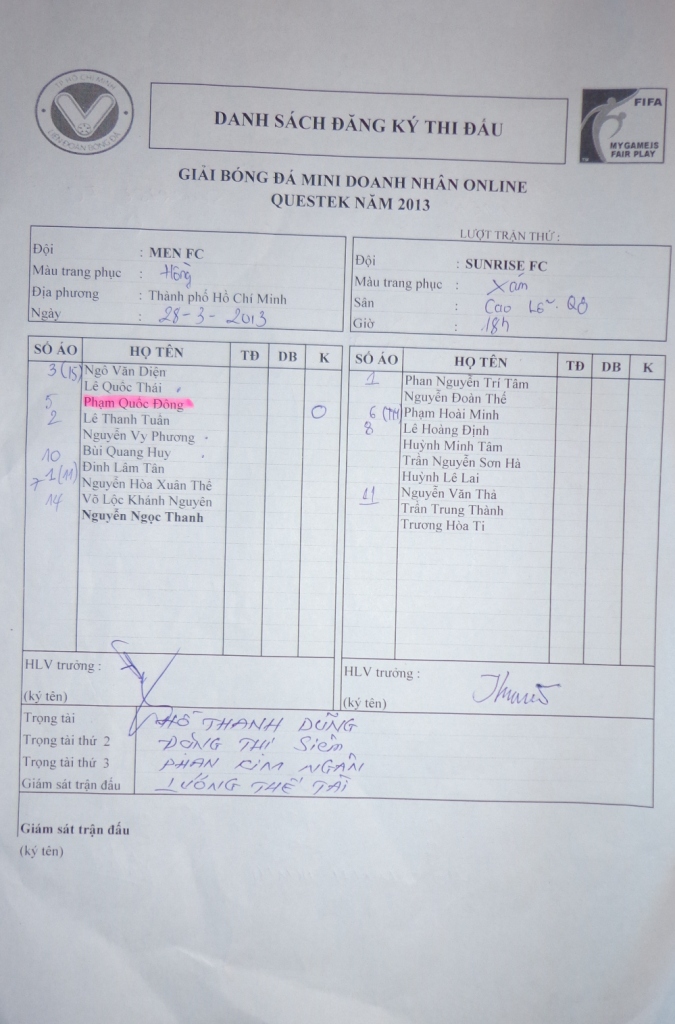 TP HỒ CHÍ MINH
LIÊN ĐOÀN BÓNG ĐÁ
DANH SÁCH ĐĂNG KÝ THI ĐẤU
FIFA
MY GAME IS
FAIR PLAY
GIẢI BÓNG ĐÁ MINI DOANH NHÂN ONLINE
QUESTEK NĂM 2013
LƯỢT TRẬN THỨ :
Đội : MEN FC
Màu trang phục : Hồng
Địa phương : Thành phố Hồ Chí Minh
Ngày : 28-3-2013
Đội : SUNRISE FC
Màu trang phục : Xám
Sân : Cao Lỗ Q8
Giờ : 18h
SỐ ÁO HỌ TÊN TĐ DB K
3 (15) Ngô Văn Diện
Lê Quốc Thái
5 Phạm Quốc Đông O
2 Lê Thanh Tuấn
Nguyễn Vy Phương
10 Bùi Quang Huy
1 (11) Đinh Lâm Tân
7 Nguyễn Hòa Xuân Thế
14 Võ Lộc Khánh Nguyên
Nguyễn Ngọc Thanh
SỐ ÁO HỌ TÊN TĐ DB K
1 Phan Nguyễn Trí Tâm
Nguyễn Đoàn Thế
6 (TM) Phạm Hoài Minh
8 Lê Hoàng Định
Huỳnh Minh Tâm
Trần Nguyễn Sơn Hà
Huỳnh Lê Lai
11 Nguyễn Văn Thả
Trần Trung Thành
Trương Hòa Ti
HLV trưởng :
(ký tên)
HLV trưởng :
(ký tên)
Trọng tài HỒ THANH DŨNG
Trọng tài thứ 2 ĐỒNG THỊ Siêm
Trọng tài thứ 3 PHAN KIM NGÂN
Giám sát trận đấu LƯƠNG THẾ TÀI
Giám sát trận đấu
(ký tên)